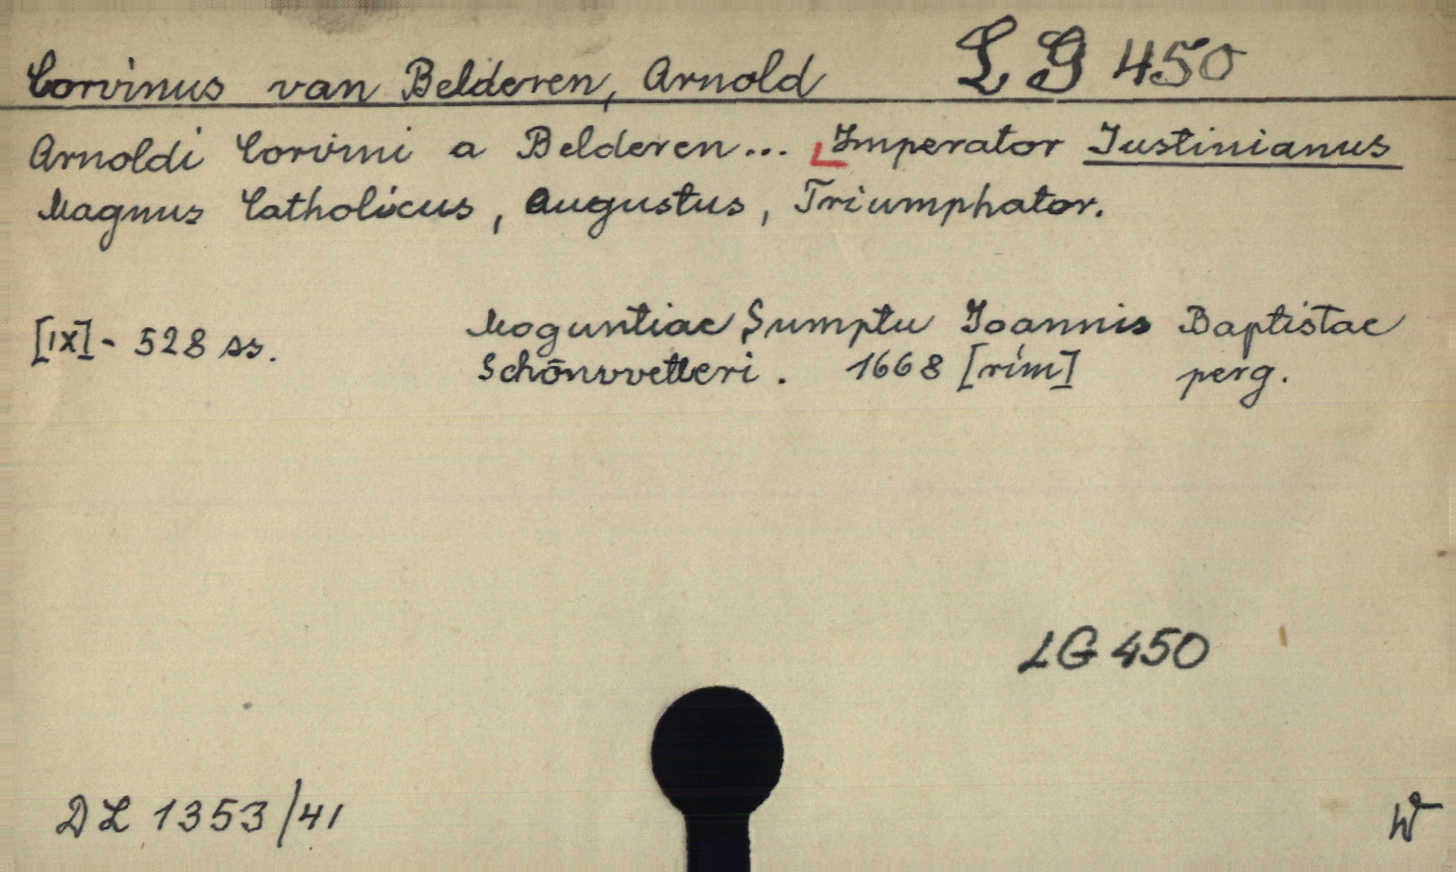 Corvinus van Belderen, Arnold LG 450
Arnoldi Corvini a Belderen... Imperator Iustinianus
Magnus Catholicus, Augustus, Triumphator.
[IX]- 528 ss. Moguntiae, Sumptu Ioannis Baptistae
Schönvvetteri. 1668 [rím] perg.
LG 450
DL 1353/41 W